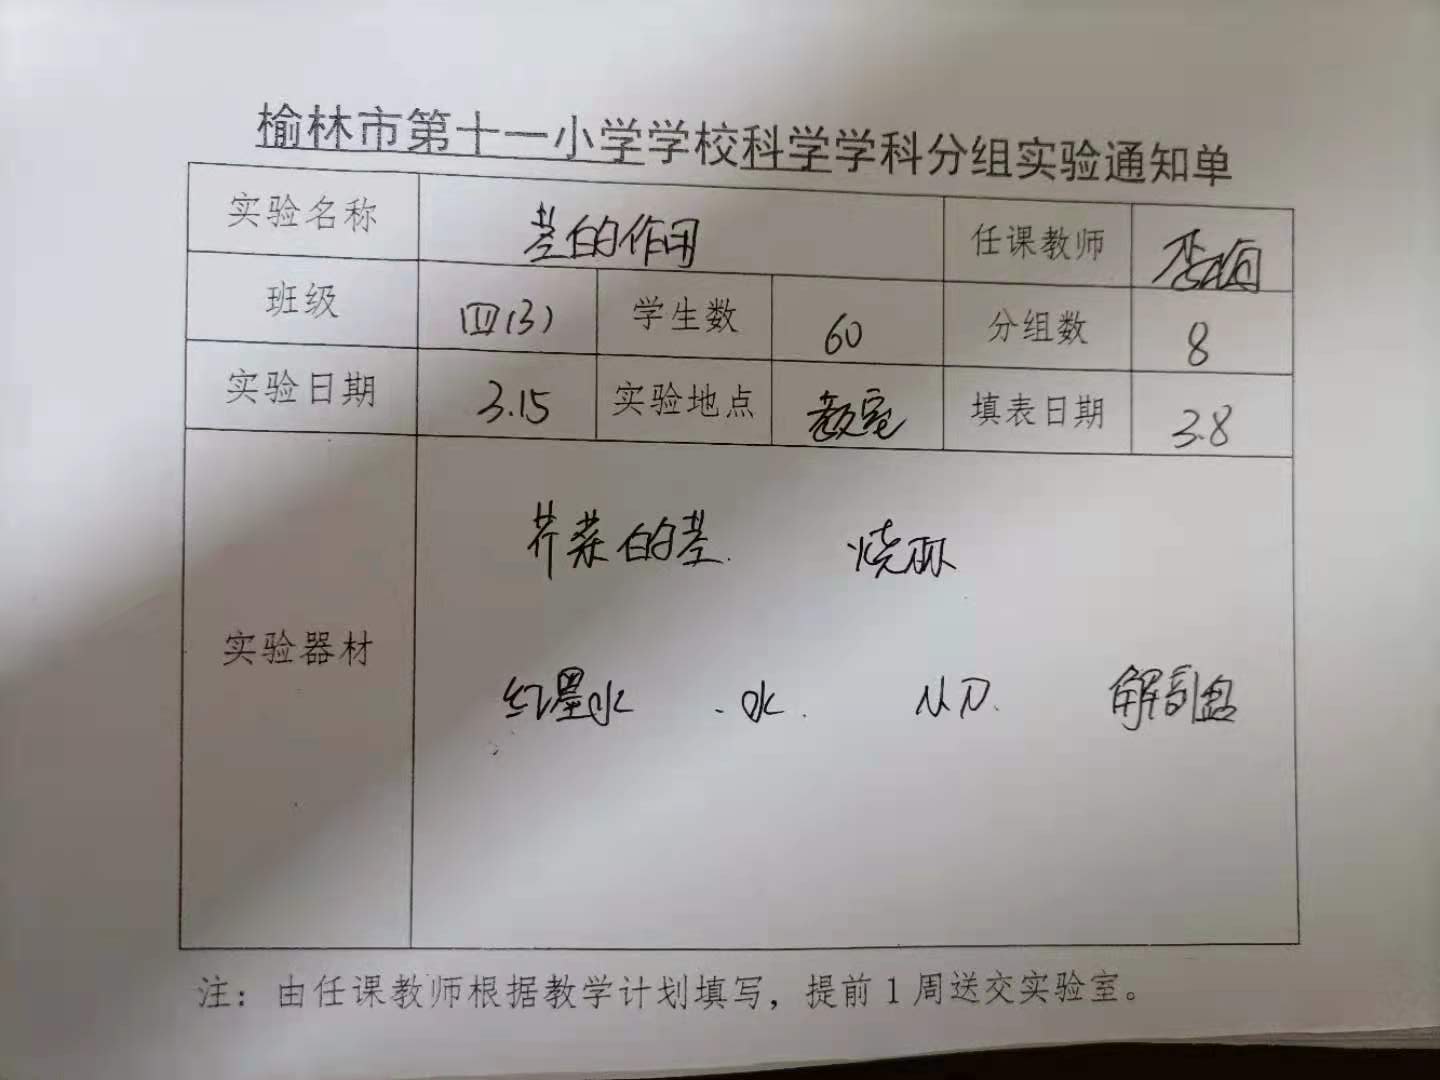 榆林市第十一小学学校科学学科分组实验通知单
实验名称 茎的作用 任课教师
班级 四(3) 学生数 60 分组数 8
实验日期 3.15 实验地点 教室 填表日期 3.8
实验器材
芹菜的茎. 烧杯
红墨水 . 水. 小刀. 解剖盘
注：由任课教师根据教学计划填写，提前1周送交实验室。